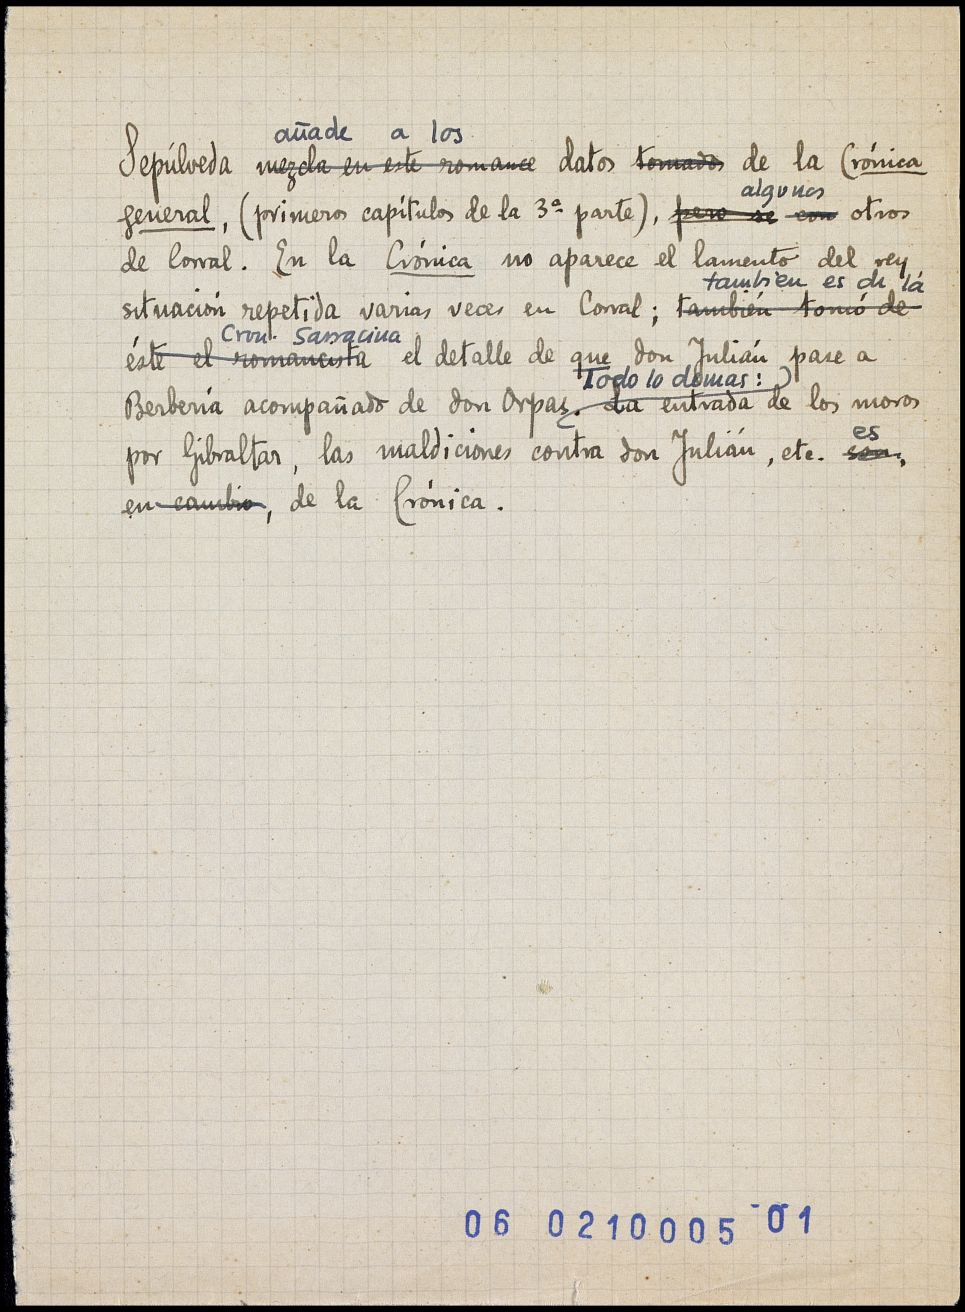 añade a los
Sepúlveda mezcla en este romance datos tomados de la Crónica
algunos
general, (primeros capítulos de la 3ª parte), pero se con otros
de Corral. En la Crónica no aparece el lamento del rey
también es de la
situación repetida varias veces en Corral; también tomó de
Cron. Sarracina
éste el romancista el detalle de que don Julián pase a
Todo lo demas:
Berbería acompañado de don Orpaz. La entrada de los moros
es
por Gibraltar, las maldiciones contra don Julián, etc. son,
en cambio, de la Crónica.
06 0210005 -01